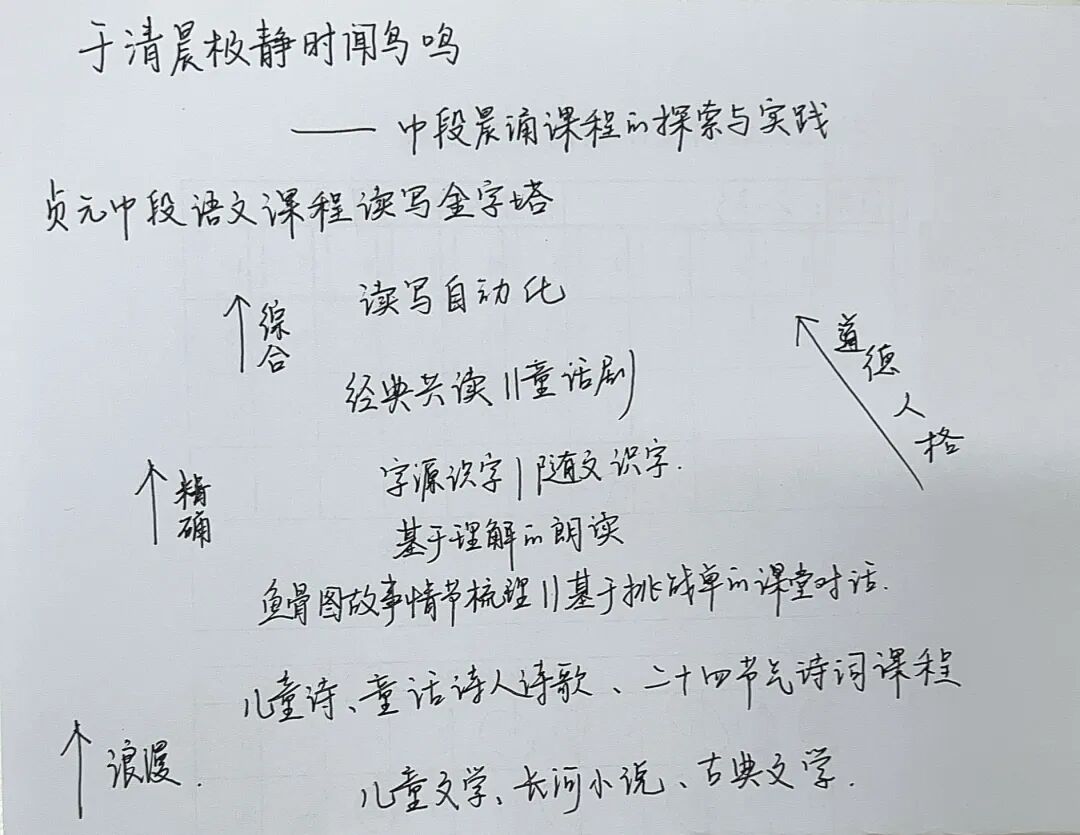 于清晨极静时闻鸟鸣
—— 中段晨诵课程的探索与实践
贞元中段语文课程读写金字塔
读写自动化
↑综合
道德人格
经典共读||童话剧
字源识字|随文识字.
↑精确
基于理解的朗读
鱼骨图故事情节梳理||基于挑战单的课堂对话.
儿童诗、童话诗人诗歌、二十四节气诗词课程
↑浪漫.
儿童文学、长河小说、古典文学.